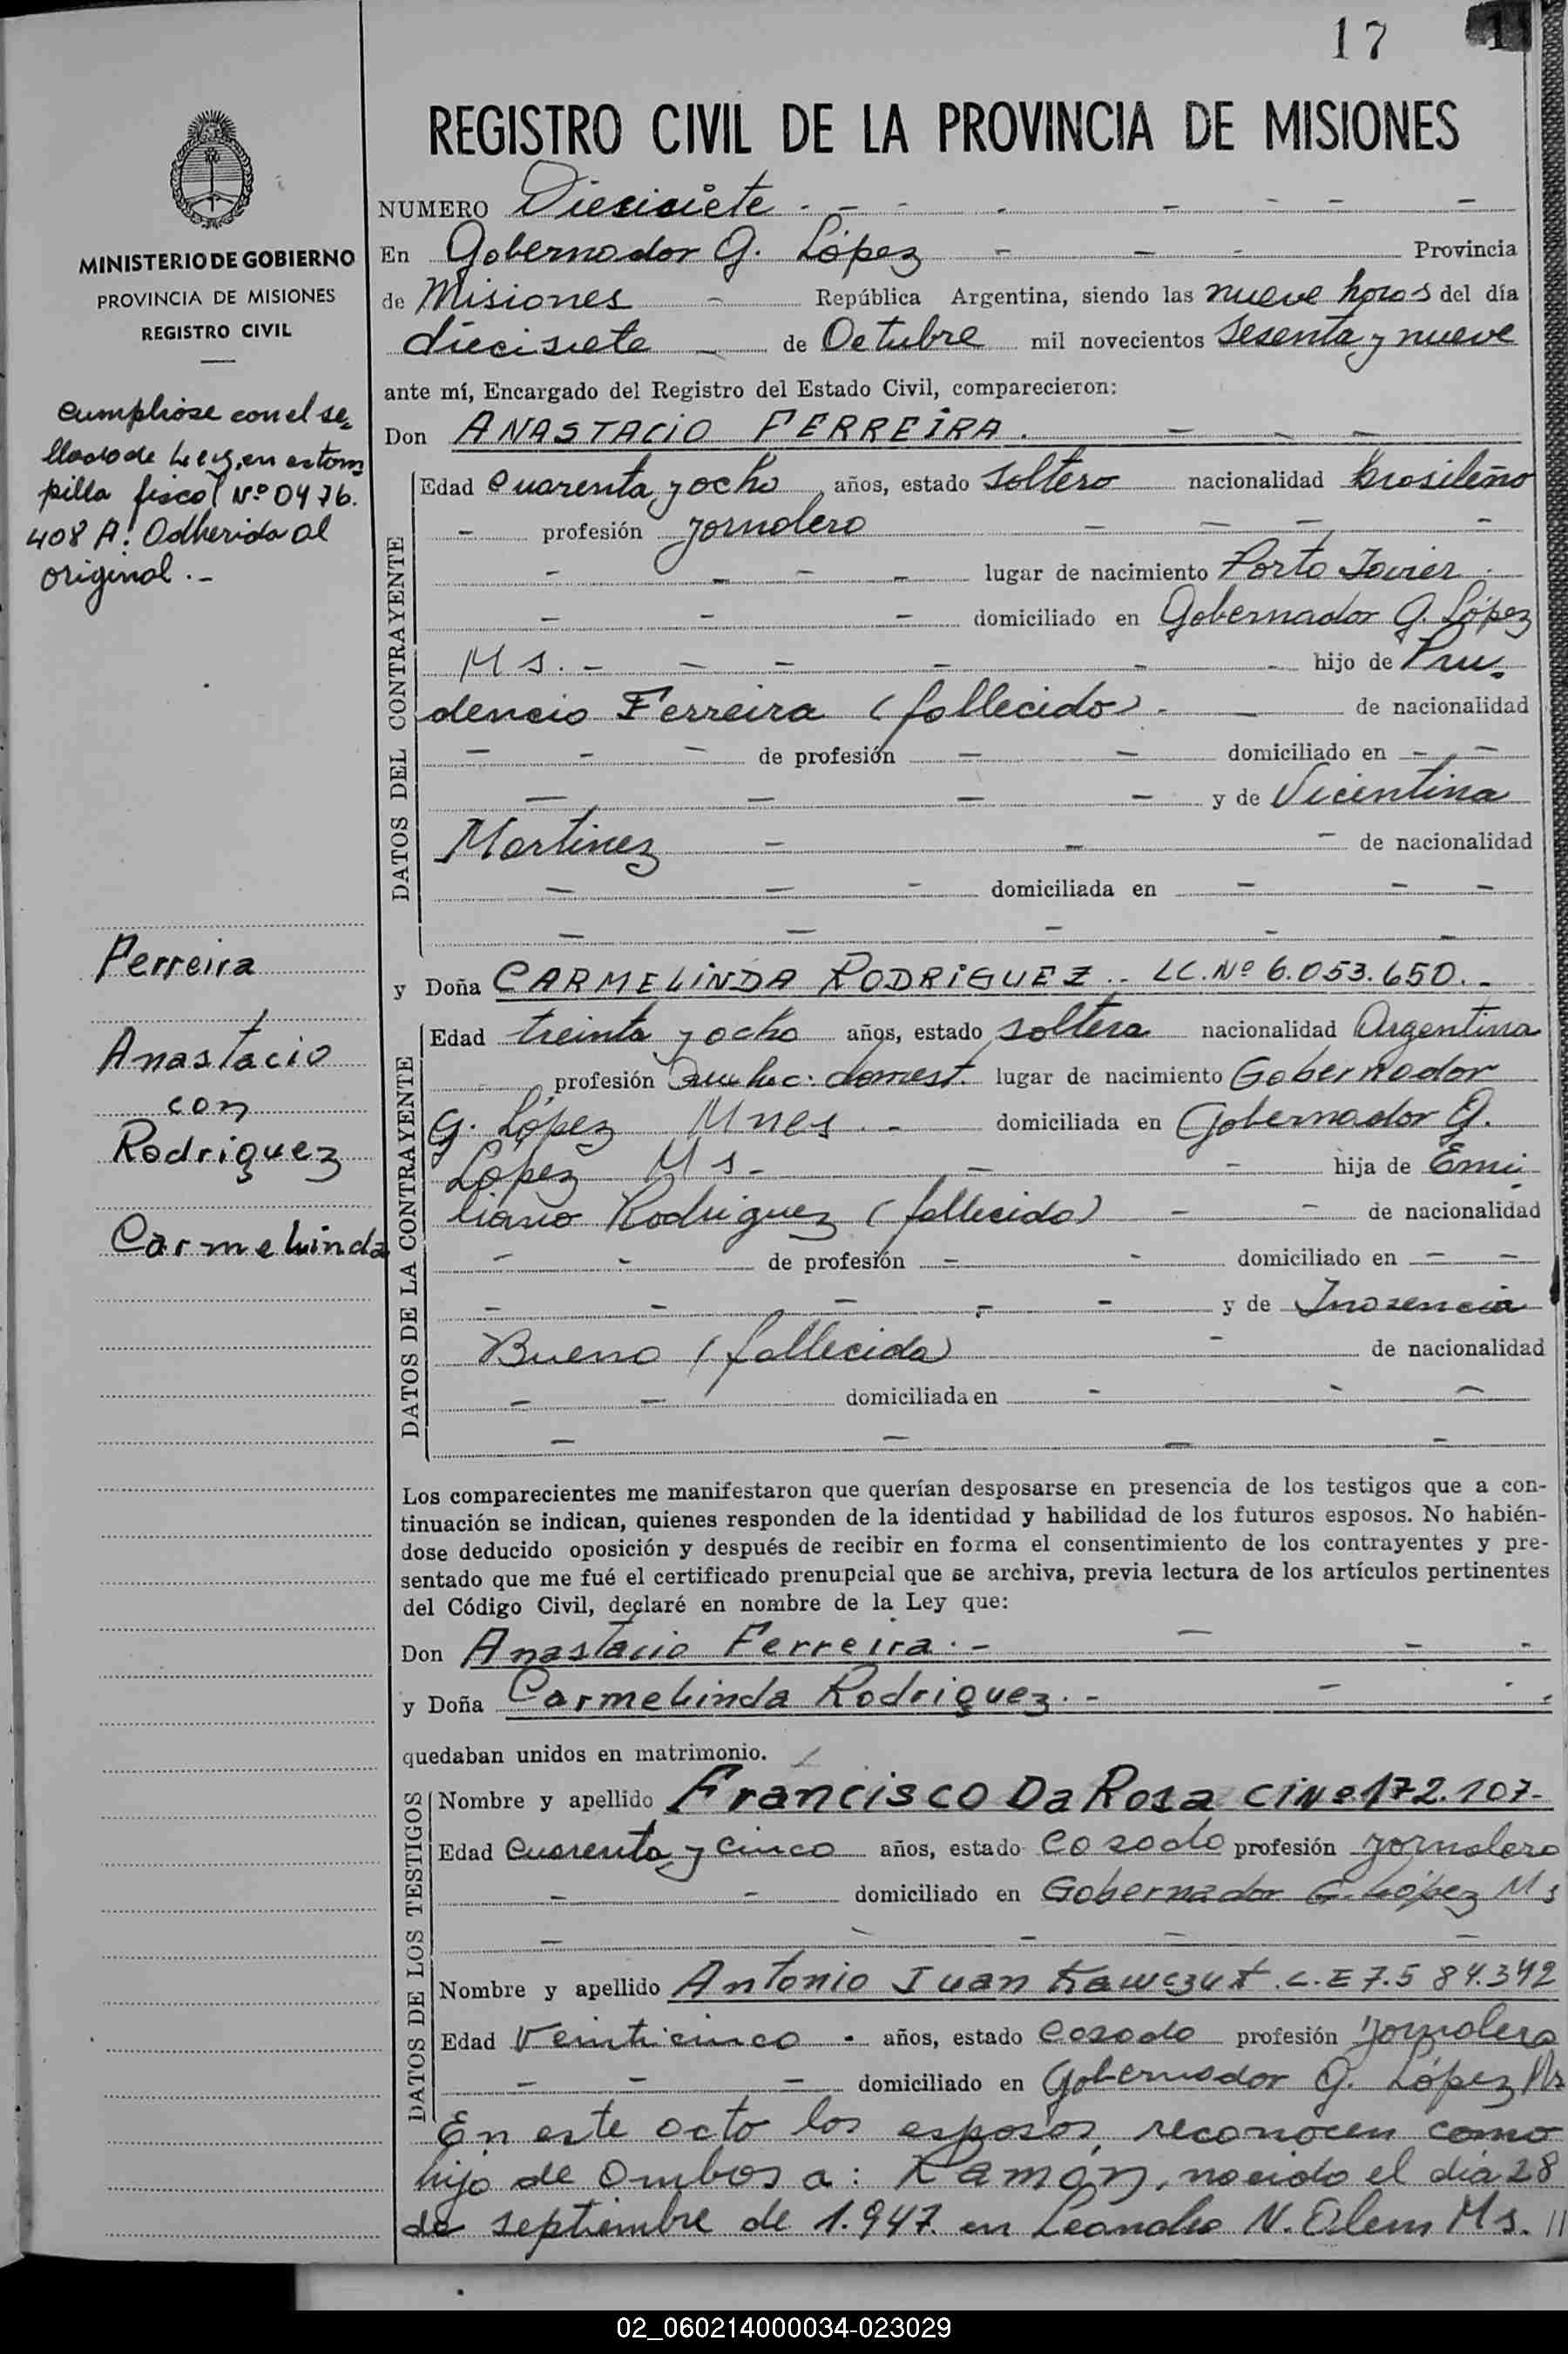 17
REGISTRO CIVIL DE LA PROVINCIA DE MISIONES
MINISTERIO DE GOBIERNO
PROVINCIA DE MISIONES
REGISTRO CIVIL
Cumplióse con el se-
llado de Ley, en estam
pilla fiscal Nº 0476.
408 A. Adherida al
original.-
Ferreira
Anastacio
con
Rodriguez
Carmelinda
NUMERO Diecisiete
En Gobernador G. López Provincia
de Misiones República Argentina, siendo las nueve horas del día
diecisiete de Octubre mil novecientos sesenta y nueve
ante mí, Encargado del Registro del Estado Civil, comparecieron:
Don ANASTACIO FERREIRA.
DATOS DEL CONTRAYENTE
Edad Cuarenta y ocho años, estado soltero nacionalidad brasileño
profesión jornalero
lugar de nacimiento Porto Javier
domiciliado en Gobernador G. López
Ms. hijo de Pru-
dencio Ferreira (fallecido) de nacionalidad
de profesión domiciliado en
y de Vicentina
Martinez de nacionalidad
domiciliada en
y Doña CARMELINDA RODRIGUEZ.- LC. Nº 6.053.650.-
DATOS DE LA CONTRAYENTE
Edad treinta y ocho años, estado soltera nacionalidad Argentina
profesión domest. lugar de nacimiento Gobernador
G. López Mnes domiciliada en Gobernador G.
López Ms hija de Emi
liano Rodriguez (fallecido) de nacionalidad
de profesión domiciliado en
y de Inosencia
Bueno (fallecida) de nacionalidad
domiciliada en
Los comparecientes me manifestaron que querían desposarse en presencia de los testigos que a con-
tinuación se indican, quienes responden de la identidad y habilidad de los futuros esposos. No habién-
dose deducido oposición y después de recibir en forma el consentimiento de los contrayentes y pre-
sentado que me fué el certificado prenupcial que se archiva, previa lectura de los artículos pertinentes
del Código Civil, declaré en nombre de la Ley que:
Don Anastacio Ferreira.-
y Doña Carmelinda Rodriguez.-
quedaban unidos en matrimonio.
DATOS DE LOS TESTIGOS
Nombre y apellido Francisco Da Rosa CI Nº 172.107-
Edad Cuarenta y cinco años, estado Casado profesión jornalero
domiciliado en Gobernador G. López Ms
Nombre y apellido Antonio Juan L.E 7.584.342
Edad Veinticinco años, estado Casado profesión jornalero
domiciliado en Gobernador G. López Ms
En este acto los esposos, reconocen como
hijo de ambos a: Ramón, nacido el día 28
de septiembre de 1.947. en Leandro N. Alem Ms. //
02_060214000034-023029